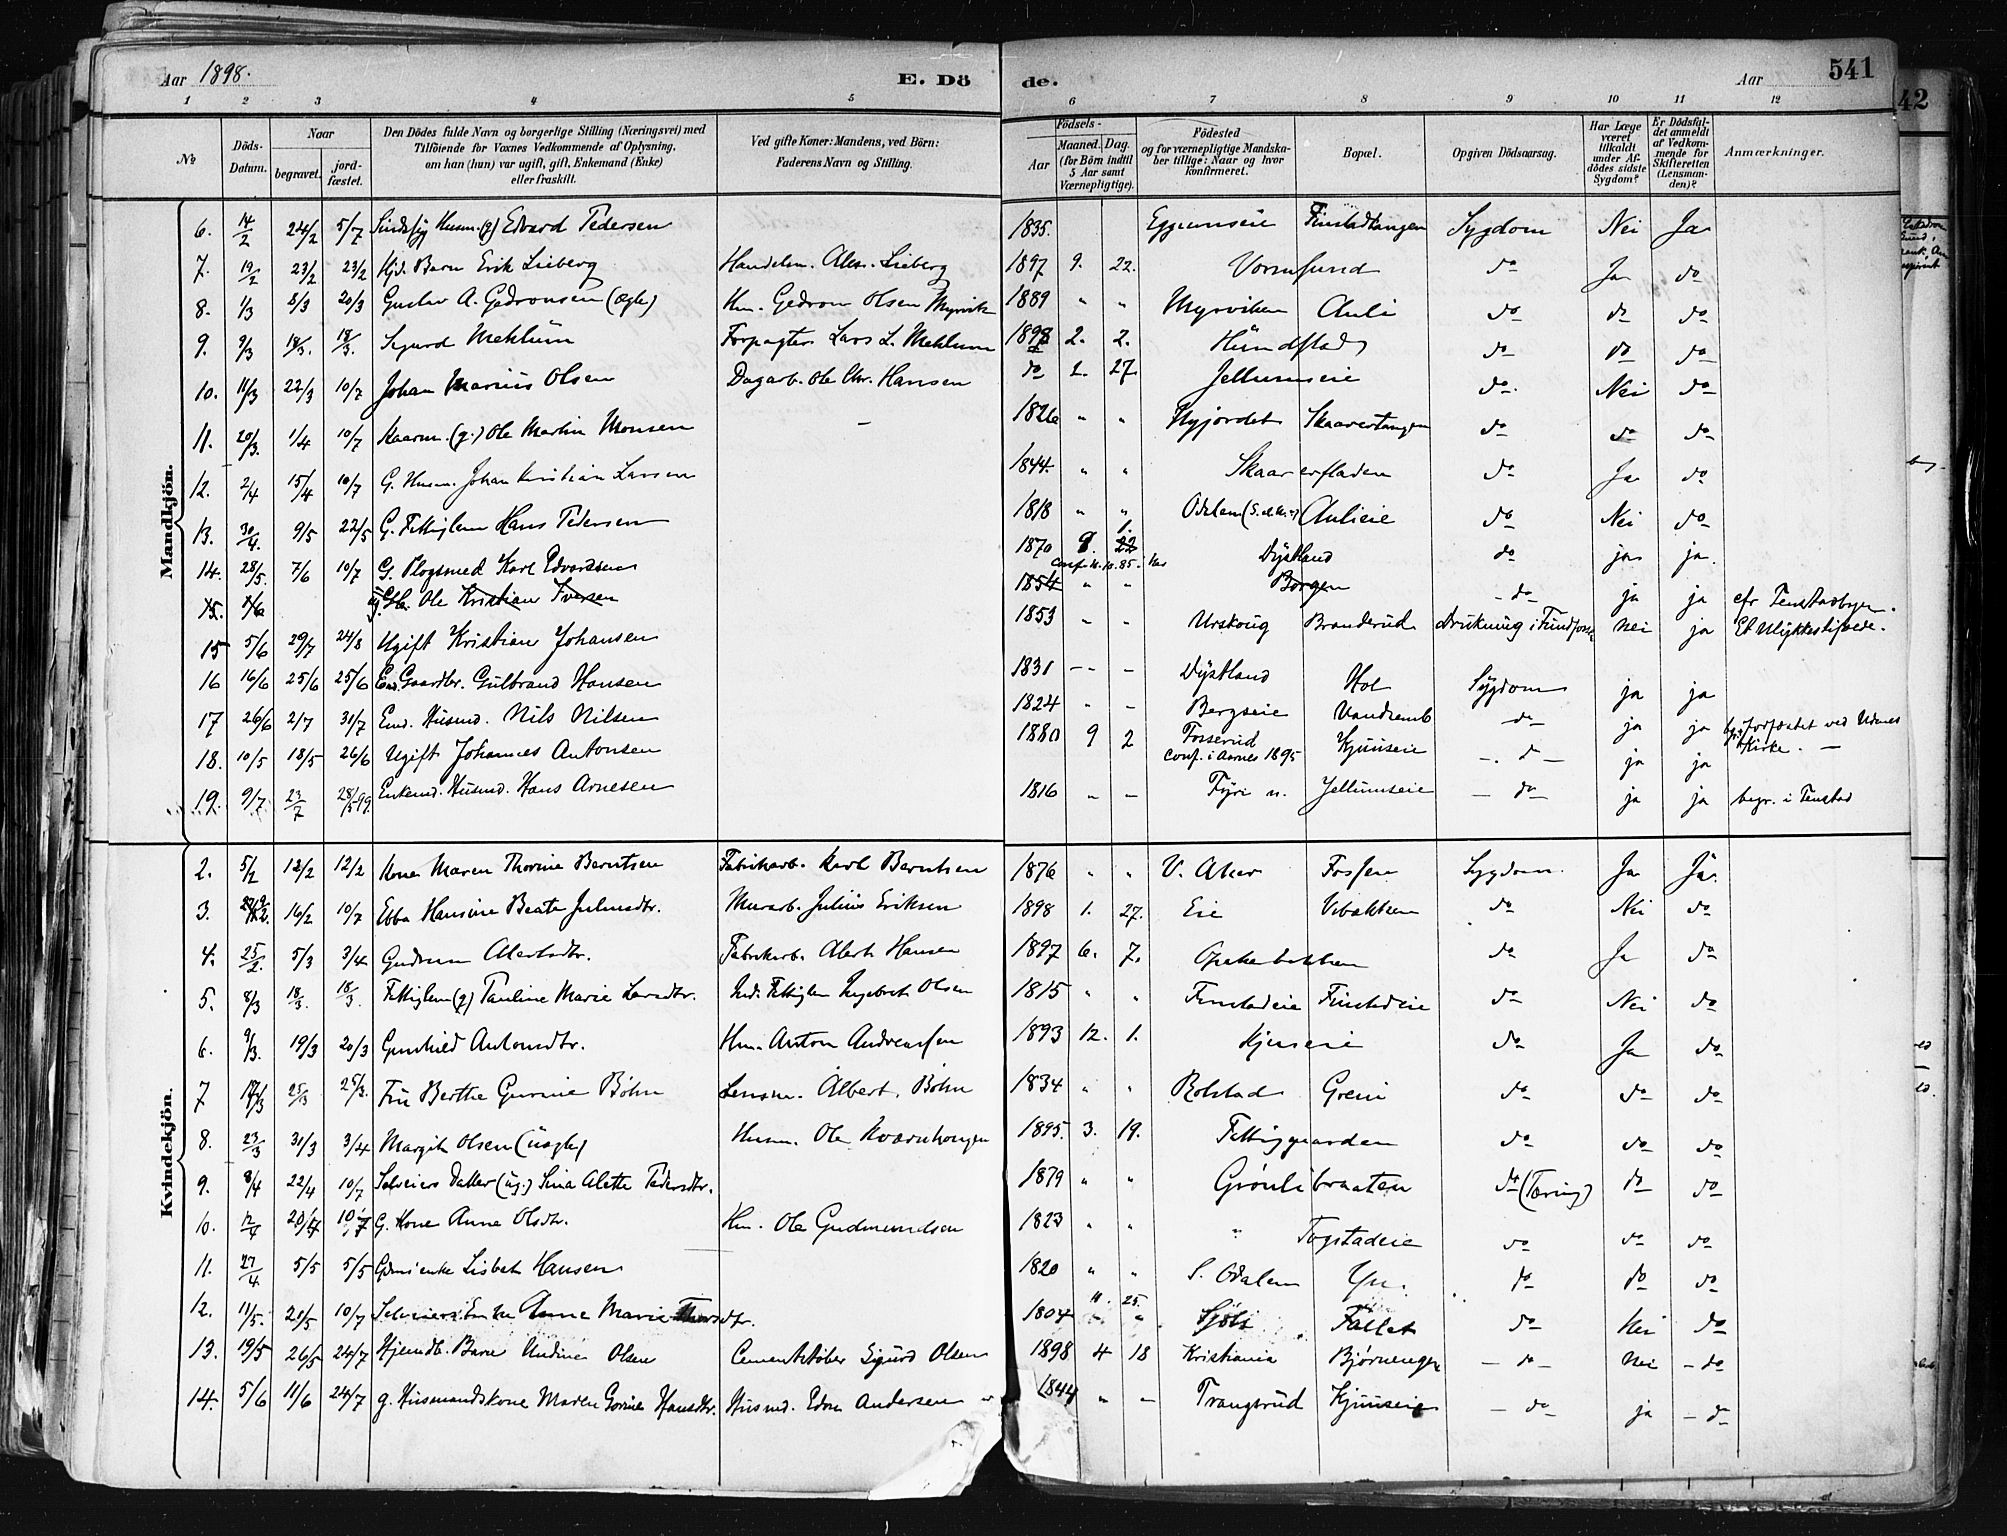 Aar 1898. E. Dö de. Aar 541
42
1 2 3 4 5 6 7 8 9 10 11 12
№ Döds-Datum. Naar begravet. jord-fæstet. Den Dödes fulde Navn og borgerlige Stilling (Næringsvei) med Tilföiende for Voxnes Vedkommende af Oplysning, om han (hun) var ugift, gift, Enkemand (Enke) eller fraskilt. Ved gifte Koner: Mandens, ved Börn: Faderens Navn og Stilling. Födsels- Aar Maaned. Dag. (for Börn indtil 5 Aar samt Værnepligtige). Födested og for værnepligtige Mandskaber tillige: Naar og hvor konfirmeret. Bopæl. Opgiven Dödsaarsag. Har Læge været tilkaldt under Afdödes sidste Sygdom? Er Dödsfaldet anmeldt af Vedkommende for Skifteretten (Lensmanden)? Anmærkninger.
Mandkjön.
6. 14/2 24/2 5/7 Husm. (g) Edvard Pedersen 1835. Eggumseie Finstadtangen Sygdom Nei Ja
7. 19/2 23/2 23/2 Hjd. Barn Erik Lieberg Handelsm. Alex. Lieberg 1897 9. 22. Vormsund do Ja do
8. 1/3 8/3 20/3 Gustav A. Gedronsen (ægte) Hm. Gedron Olsen Myrvik 1889 " " Myrviken Auli do do do
9. 9/3 18/3. 18/3. Sigurd Mehlum Forpagter Lars L. Mehlum 1898 2. 2. Hundstad do do do
10. 11/3 22/3 10/7 Johan Marius Olsen Dagarb. Ole Chr. Hansen do 1. 27. Jellumseie do. Nei do
11. 20/3. 1/4 10/7 Kaarm. (g.) Ole Martin Monsen - 1826 " " Nyjordet Skaarertangen do do do
12. 2/4 15/4 10/7 G. Husm. Johan Kristian Larsen 1844. " " Skaarerfladen do Ja do
13. 30/4. 9/5 22/5 G. Fattiglem Hans Pedersen 1818 " " Odalen Aulieie do Nei do
14. 28/5. 7/6 10/7 G. Plogsmed Karl Edvardsen 1870 9. 1. 22 conf. 85. Dystland do ja ja.
15. 1/6 Ole Kristian Iversen 1854 " " Borgen - do - ja ja cfr Tenstadbyen.
15 5/6 29/7 24/8 Ugift Kristian Johansen 1853 " " Urskoug Branderud Drukning i Fundfossen nei ja Et Ulykkestilfælde.
16 16/6 25/6 25/6 Em. Gaardbr. Gulbrand Hansen 1831 - - - Dystland Hol Sygdom ja ja
17 26/6 2/7 31/7 Em. Husmd. Nils Nilsen 1824 " - Bergseie Vandsemb do ja ja
18. 10/5 18/5 26/6 Ugift Johannes Antonsen 1880 9 2 Fosserud conf. i Aarnes 1895 Kjuuseie - do - ja ja Jordfæstet ved Udenes Kirke. -
19. 9/7 23/7 28/5 99. Enkemd. Husmd. Hans Arnesen 1816 " - Fyri n. Jellumseie - do - ja ja begr. i Tenstad
Kvindekjön.
2. 5/2 12/2 12/2 Kone Maren Thorine Berntsen Fabrikarb. Karl Berntsen 1876 " " V. Aker Fossen Sygdom. Ja Ja.
3. 16/2 10/7 Ebba Hansine Beate Juliusdtr. Murarb. Julius Eriksen 1898 1. 27. Eie Vibakken do Nei do
4. 25/2. 5/3 3/4 Gudrun Albertsdtr. Fabrikarb. Albert Hansen 1897 6. 7. Opakerbakken do Ja do
5. 8/3 18/3. 18/3. Fattiglem (g) Pauline Marie Larsdtr. Ind. Fattiglem Ingebret Olsen 1815 " " Finstadeie Finstadeie do Nei do
6. 9/3. 19/3 20/3 Gunhild Antonsdtr. Hm. Anton Andreassen 1893 12. 1. Kjuseie do Ja do
7 17/3 25/3 25/3. Fru Berthe Gurine Böhn Lensm. Albert Böhn 1834 " " Rolstad Greni do do do
8. 23/3 31/3 3/4 Margit Olsen (uægte) Husm. Ole Kværnhaugen 1895. 3. 19. Fattiggaarden do do do
9. 8/4 22/4 10/7 Selveiers Datter (ug.) Lina Alette Pedersdtr. 1879 " " Grønlibraaten do (Tæring) do do
10. 12/4 20/4 10/7 G. Kone Anne Olsdtr. Hm. Ole Gudmundsen 1823 " " " Togstadeie do do do
11. 27/4 5/5 5/5 Gdmsenke Lisbet Hansen 1820 " " S. Odalen do do do
12. 11/5. 20/5 10/7 Selveiers Enke Anne Marie dtr. 1804 11. 25. Sjöli Fallet do Nei do
13. 19/5 26/5 24/7 Hjemdb. Barn Undine Olsen Cementstøber Sigurd Olsen 1898 4 18 Kristiania Bjørnengen - do - nei - do
14. 5/6 11/6 24/7 g. Husmandskone Maren Gorine Hansdtr. Husmd. Edvn Andersen 1844 " - Trangsrud Kjuuseie - do - ja - do